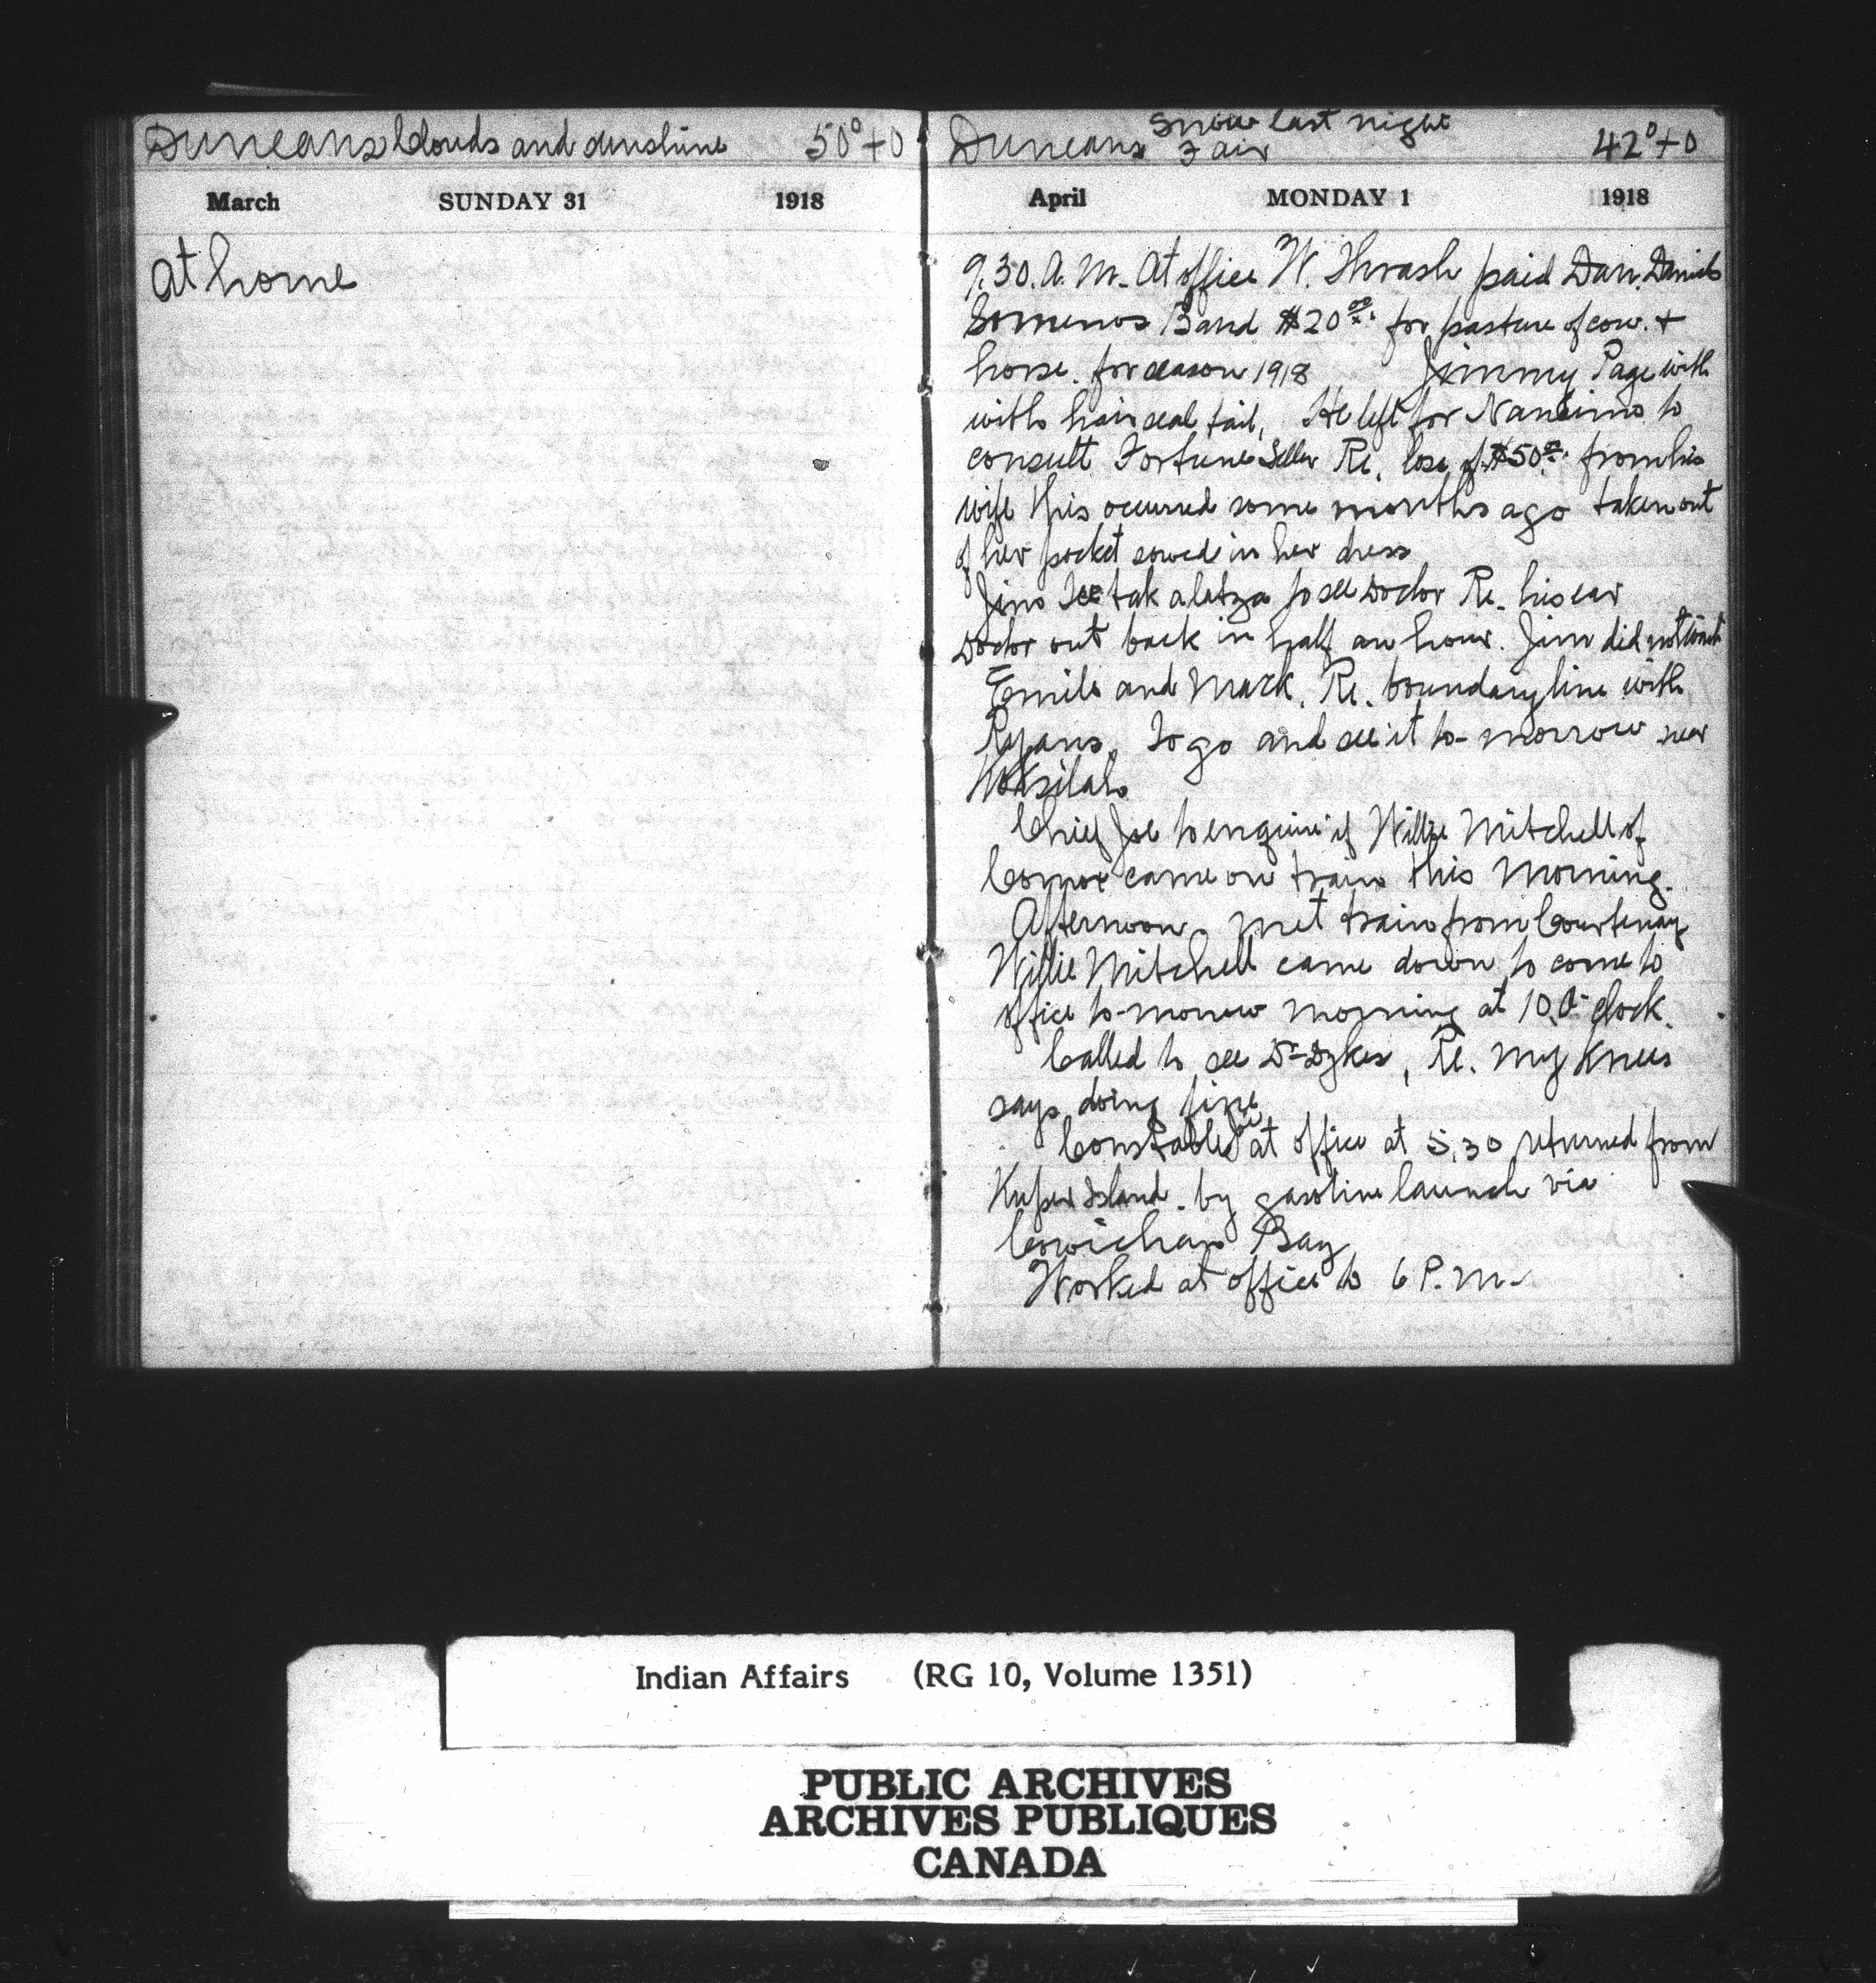 Duncans Clouds and sunshine 50°+0
March SUNDAY 31 1918
At home
Duncans Snow last night
Fair 42°+0
April MONDAY 1 1918
9.30. A. M. At office W. Thrash paid Dan. Daniels
Somenos Band $20.00 for pasture of cow. +
horse. for season 1918 Jimmy Page with
with hair seal tail, He left for Nanaimo to
consult Fortune Teller Re. lose of $50.00 from his
wife this occurred some months ago taken out
of her pocket sowed in her dress
Jim to see Doctor Re. his ear
Doctor out back in half an hour. Jim did not
Emile and Mark. Re. boundary line with
Ryans. To go and see it to-morrow near
Koksilah
Chief Joe to enquire if Willie Mitchell of
Comox came on train this Morning.
Afternoon. met train from Courtenay
Willie Mitchell came down to come to
office to-morrow morning at 10.O'clock.
Called to see Dr Dykes, Re. my Knees
says doing fine
Constable at office at 5.30 returned from
Kuper Island. by gasoline launch via
Cowichan Bay
Worked at office to 6 P.M.
Indian Affairs (RG 10, Volume 1351)
PUBLIC ARCHIVES
ARCHIVES PUBLIQUES
CANADA